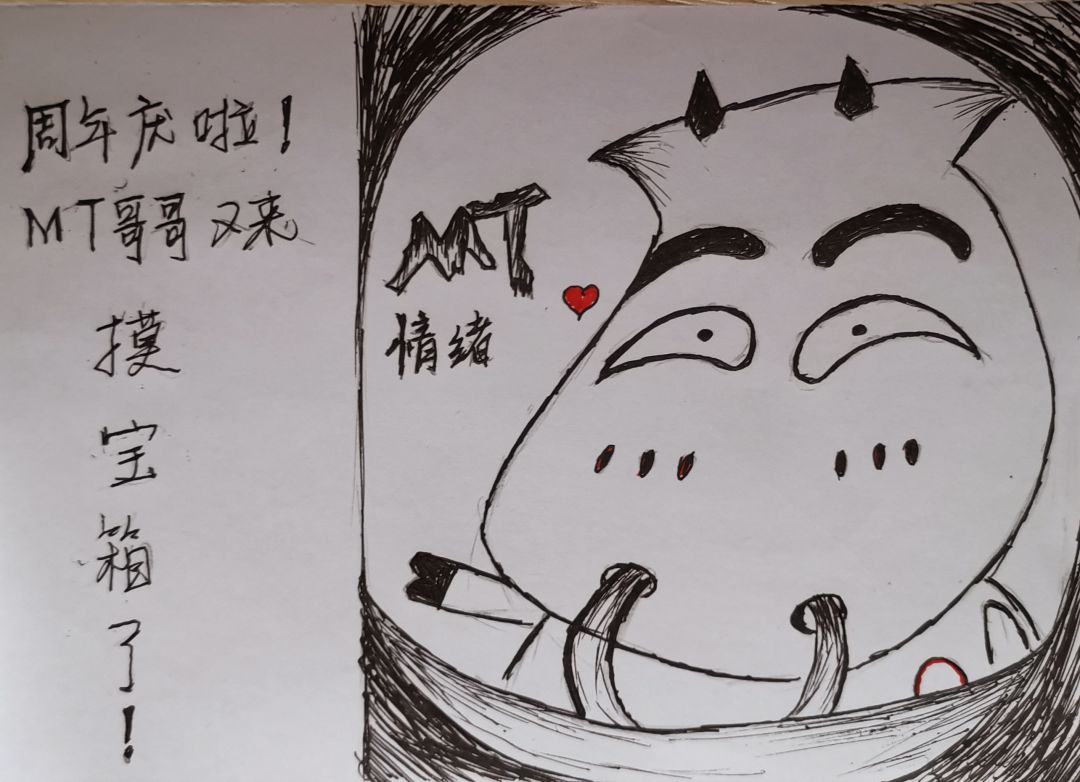 周年庆啦！
MT哥哥又来
摸
宝
箱
了
！
MT
情绪